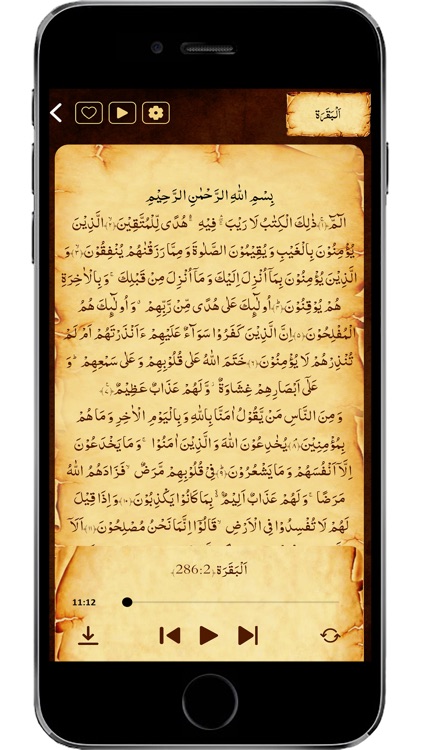 اَلْبَقَرَة
بِسْمِ اللهِ الرَّحْمٰنِ الرَّحِيْمِ
الٓمّٓ ﴿۱﴾ ذٰلِكَ الْكِتٰبُ لَا رَيْبَ ۛ فِيْهِ ۛ هُدًى لِّلْمُتَّقِيْنَ ﴿۲﴾ الَّذِيْنَ
يُؤْمِنُوْنَ بِالْغَيْبِ وَ يُقِيْمُوْنَ الصَّلٰوةَ وَ مِمَّا رَزَقْنٰهُمْ يُنْفِقُوْنَ ﴿۳﴾ وَ
الَّذِيْنَ يُؤْمِنُوْنَ بِمَآ اُنْزِلَ اِلَيْكَ وَ مَآ اُنْزِلَ مِنْ قَبْلِكَ ۚ وَ بِالْاٰخِرَةِ
هُمْ يُوْقِنُوْنَ ﴿۴﴾ اُولٰٓئِكَ عَلٰى هُدًى مِّنْ رَّبِّهِمْ ٭ وَ اُولٰٓئِكَ هُمُ
الْمُفْلِحُوْنَ ﴿۵﴾ اِنَّ الَّذِيْنَ كَفَرُوْا سَوَآءٌ عَلَيْهِمْ ءَاَنْذَرْتَهُمْ اَمْ لَمْ
تُنْذِرْهُمْ لَا يُؤْمِنُوْنَ ﴿۶﴾ خَتَمَ اللهُ عَلٰى قُلُوْبِهِمْ وَ عَلٰى سَمْعِهِمْ ؕ وَ
عَلٰٓى اَبْصَارِهِمْ غِشَاوَةٌ ۫ وَّ لَهُمْ عَذَابٌ عَظِيْمٌ ﴿۷﴾
وَ مِنَ النَّاسِ مَنْ يَّقُوْلُ اٰمَنَّا بِاللهِ وَ بِالْيَوْمِ الْاٰخِرِ وَ مَا هُمْ
بِمُؤْمِنِيْنَ ﴿۸﴾ يُخٰدِعُوْنَ اللهَ وَ الَّذِيْنَ اٰمَنُوْا ۚ وَ مَا يَخْدَعُوْنَ
اِلَّآ اَنْفُسَهُمْ وَ مَا يَشْعُرُوْنَ ﴿۹﴾ فِيْ قُلُوْبِهِمْ مَّرَضٌ ۙ فَزَادَهُمُ اللهُ
مَرَضًا ۚ وَ لَهُمْ عَذَابٌ اَلِيْمٌ ۢ ۙ بِمَا كَانُوْا يَكْذِبُوْنَ ﴿۱۰﴾ وَ اِذَا قِيْلَ
لَهُمْ لَا تُفْسِدُوْا فِي الْاَرْضِ ۙ قَالُوْٓا اِنَّمَا نَحْنُ مُصْلِحُوْنَ ﴿۱۱﴾ اَلَآ
اَلْبَقَرَة ﴿286:2﴾
11:12